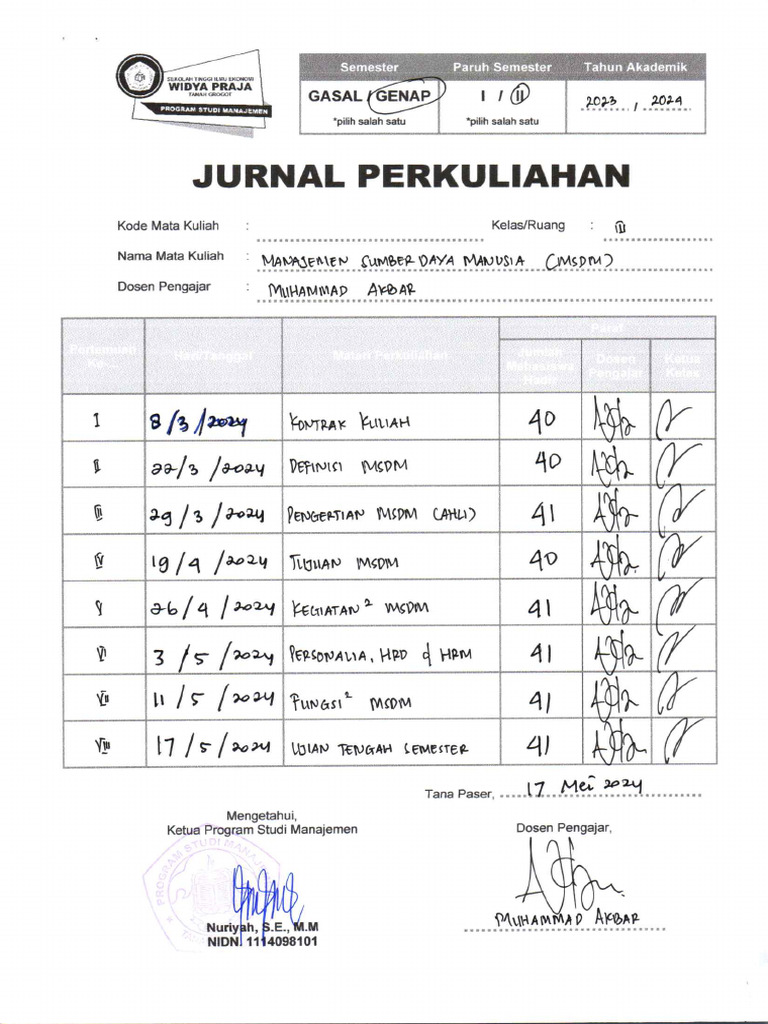 SEKOLAH TINGGI ILMU EKONOMI
WIDYA PRAJA
TANAH GROGOT
PROGRAM STUDI MANAJEMEN
Semester Paruh Semester Tahun Akademik
GASAL / GENAP I / II 2023 / 2024
*pilih salah satu *pilih salah satu
JURNAL PERKULIAHAN
Kode Mata Kuliah : Kelas/Ruang : II
Nama Mata Kuliah : MANAJEMEN SUMBER DAYA MANUSIA (MSDM)
Dosen Pengajar : MUHAMMAD AKBAR
Paraf
Pertemuan Ke- Hari/Tanggal Materi Perkuliahan Jumlah Mahasiswa Hadir Dosen Pengajar Ketua Kelas
I 8/3/2024 KONTRAK KULIAH 40
II 22/3/2024 DEFINISI MSDM 40
III 29/3/2024 PENGERTIAN MSDM (AHLI) 41
IV 19/4/2024 TUJUAN MSDM 40
V 26/4/2024 KEGIATAN² MSDM 41
VI 3/5/2024 PERSONALIA, HRD & HRM 41
VII 11/5/2024 FUNGSI² MSDM 41
VIII 17/5/2024 UJIAN TENGAH SEMESTER 41
Tana Paser, 17 Mei 2024
Mengetahui,
Ketua Program Studi Manajemen Dosen Pengajar,
PROGRAM STUDI MANAJ
Nuriyah, S.E., M.M MUHAMMAD AKBAR
NIDN. 1114098101